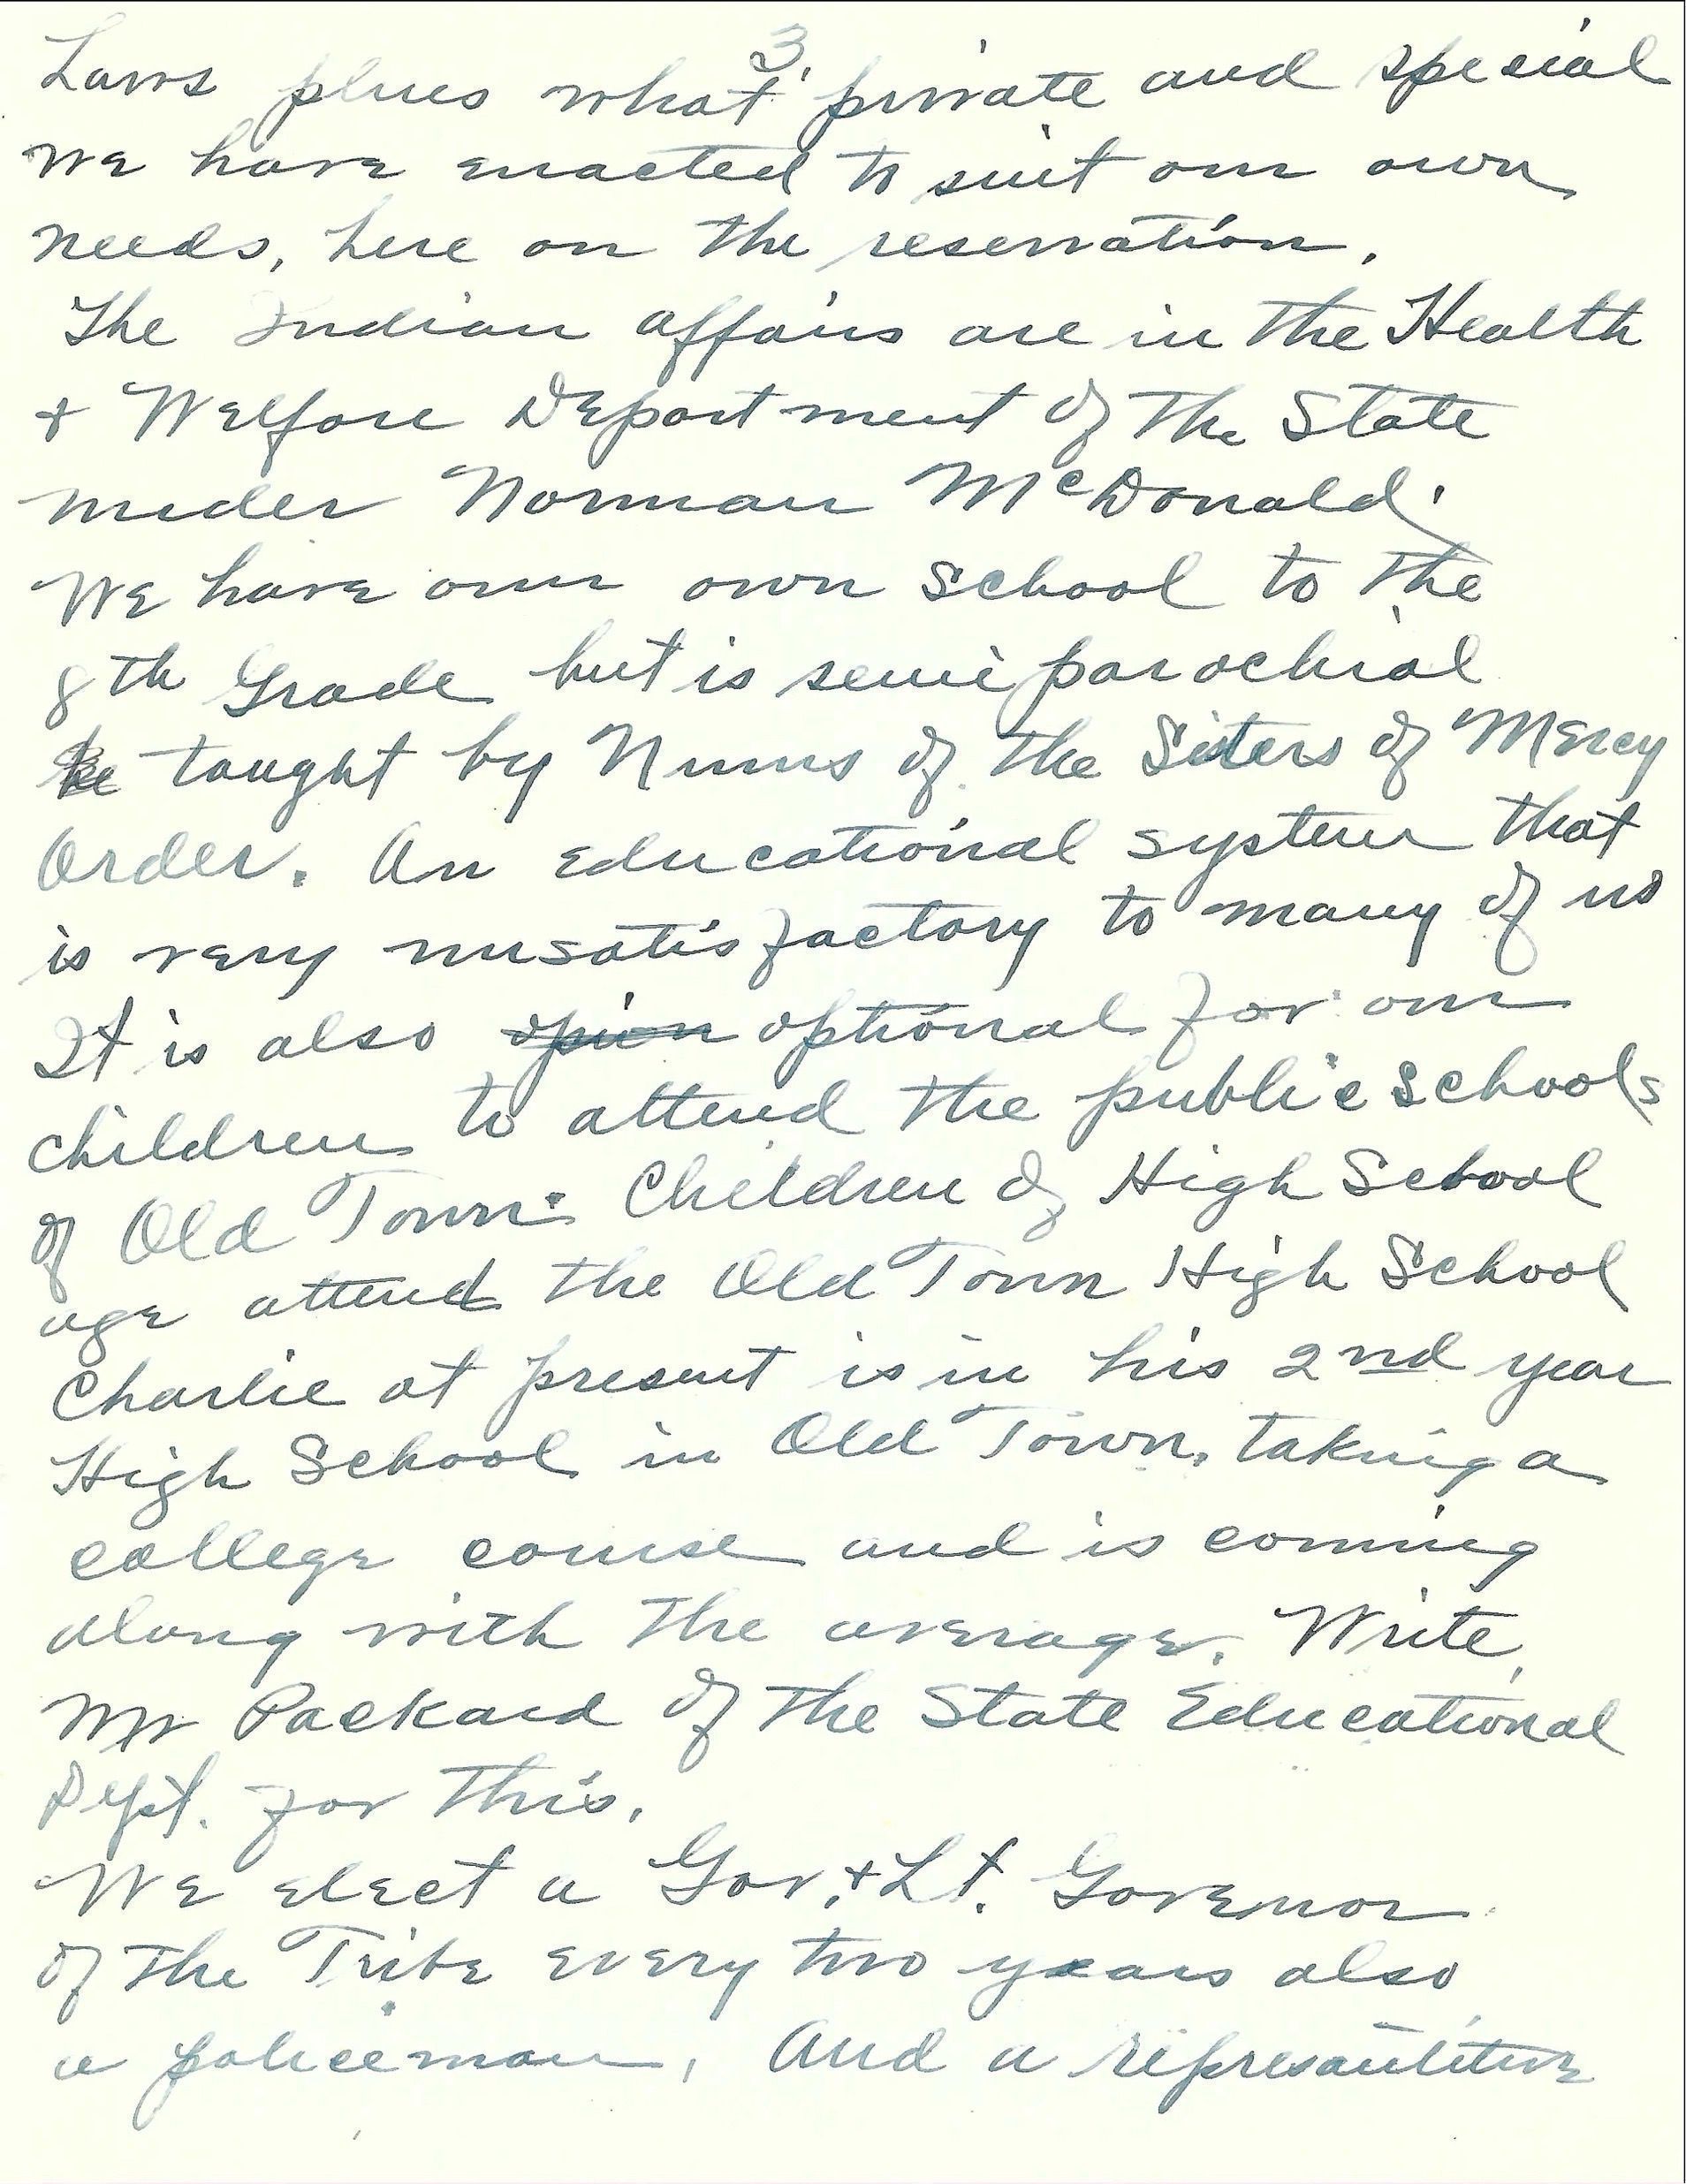 3.
Laws plus what private and special
we have enacted to suit our own
needs, here on the reservation.
The Indian affairs are in the Health
+ Welfare Department of the State
under Norman McDonald.
We have our own school to the
8th Grade but is semi parochial
taught by Nuns of the Sisters of Mercy
Order. An educational system that
is very unsatisfactory to many of us
It is also opion optional for our
children to attend the public schools
of Old Town. Children of High School
age attend the Old Town High School
Charlie at present is in his 2nd year
High School in Old Town, taking a
college course and is coming
along with the average. Write
Mr Packard of the State Educational
Dept. for this.
We elect a Gov. + Lt. Govenor
of the Tribe every two years also
a policeman, And a represantitive